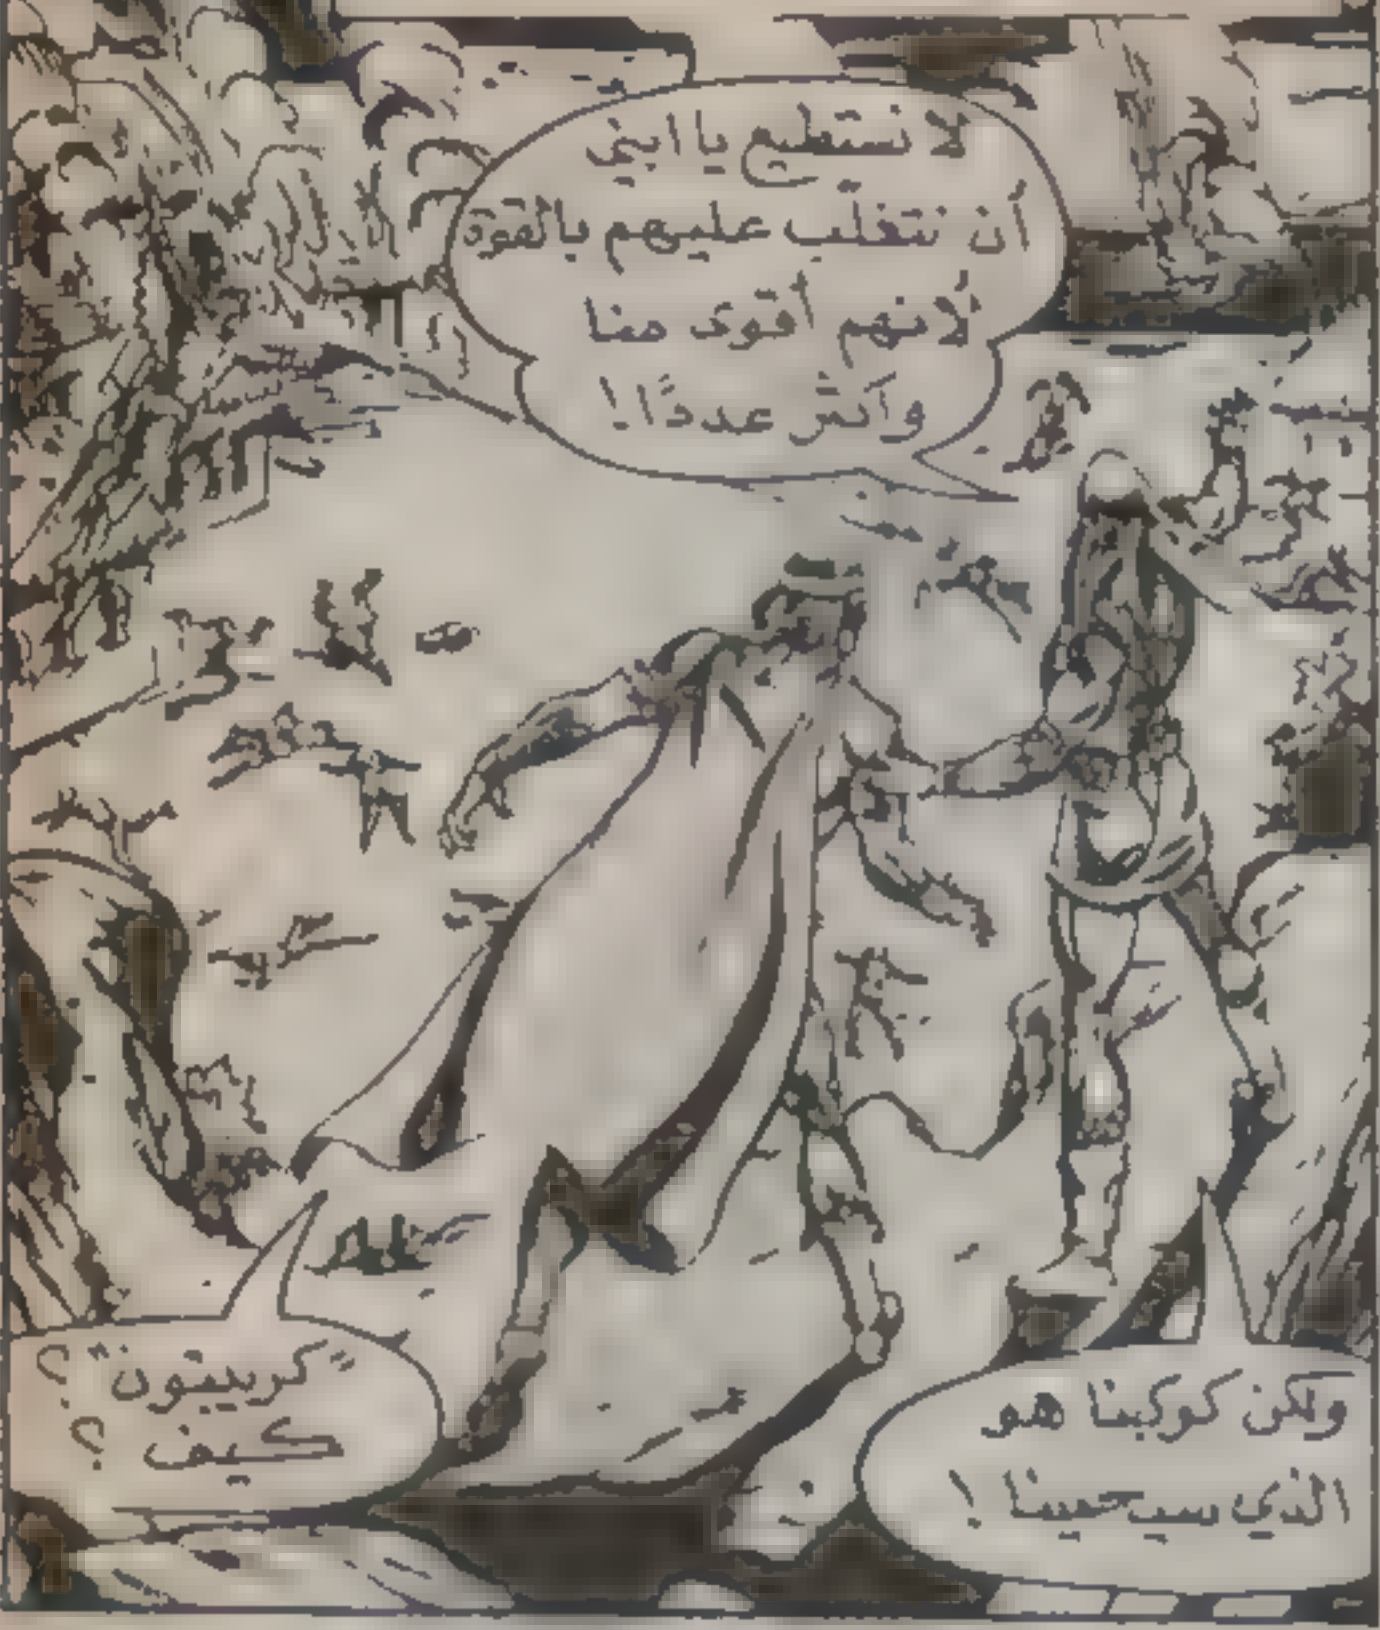 لا نستطيع يا ابني
أن نتغلب عليهم بالقوة
لأنهم أقوى منا
وأكثر عددًا!
ولكن كوكبنا هو
الذي سيحمينا !
"كريبتون" ؟
كيف ؟